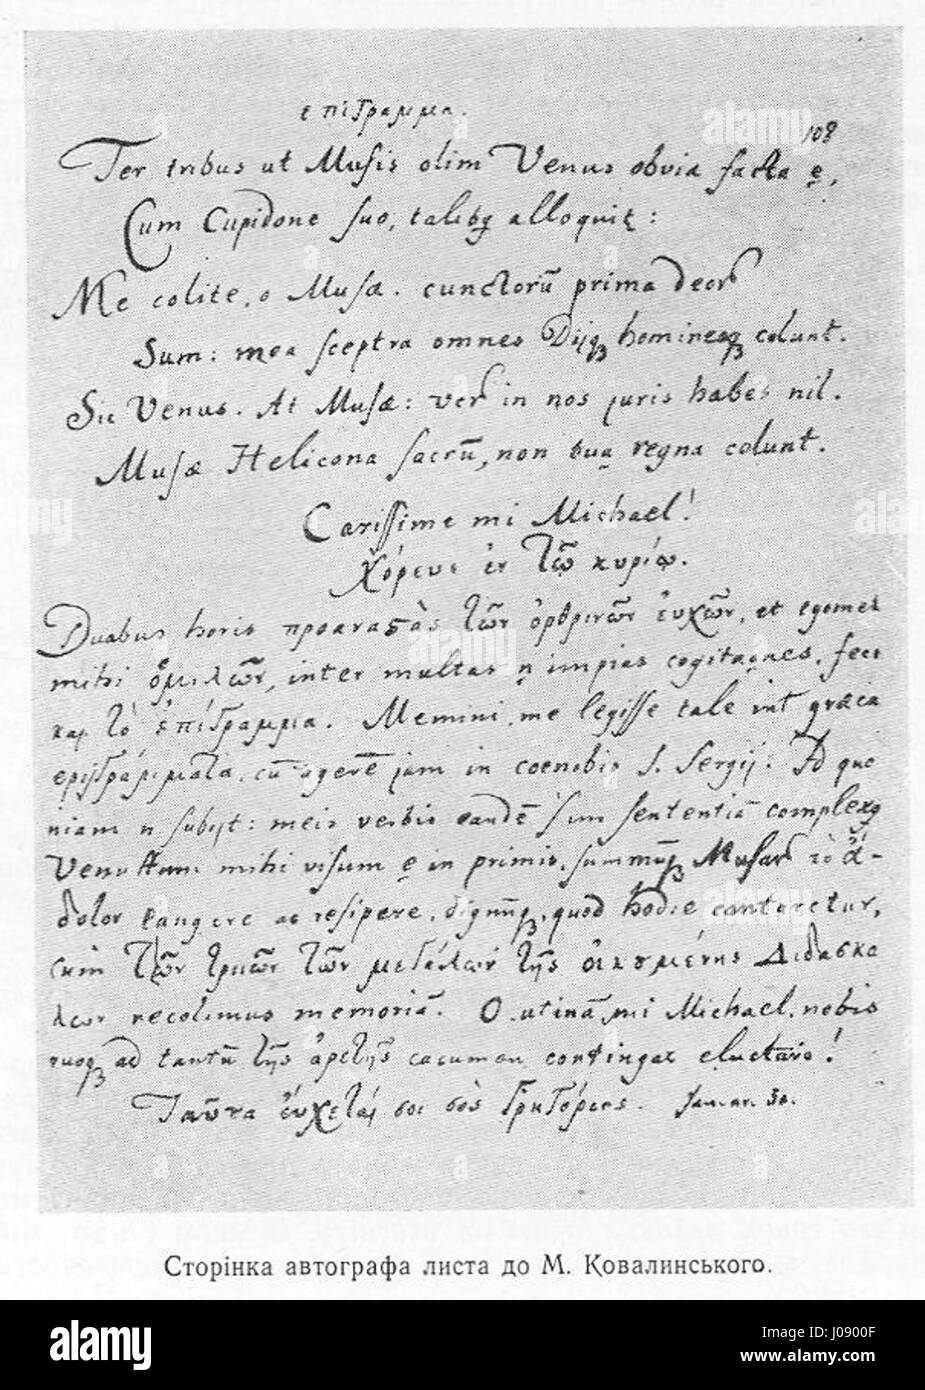 επίγραμμα.
108
Ter tribus ut Musis olim Venus obvia facta ę,
Cum Cupidone suo, talibq alloquit:
Me colite, o Musæ. cunctorū prima deor
Sum: mea sceptra omnes Dijq hominesq colunt.
Sic Venus. At Musæ: ver in nos juris habes nil.
Musæ Helicona sacrū, non tua regna colunt.
Carissime mi Michael!
Χόρευε ἐν τῶ κυρίῳ.
Duabus horis προαναστὰς τῶν ὀρθρινῶν ἐυχῶν, et egomet
mihi ὁμιλῶν, inter multas n impias cogitaōnes, feci
και τὸ ἐπίγραμμα. Memini me legisse tale int græca
επιγράμματα, cū agerē jam in coenobio S. Sergij. Id quo
niam n subijt: meis verbis eandē sententiā complexq
Venustum mihi visum ę in primis, summūq Musar
dolor tangere ac resipere, dignūq, quod hodie cantaretur,
cum τῶν τριῶν τῶν μεγάλων τῆς ὀικουμένης Διδασκα
λων recolimus memoriā. O utinā, mi Michael, nobis
quoq ad tantū τῆς ἀρετῆς cacumen contingat eluctari!
Ταῦτα ἐυχεται σοι σὸς Γρηγόριος. Januar. 30.
Сторінка автографа листа до М. Ковалинського.
alamy
Image ID: J0900F
www.alamy.com